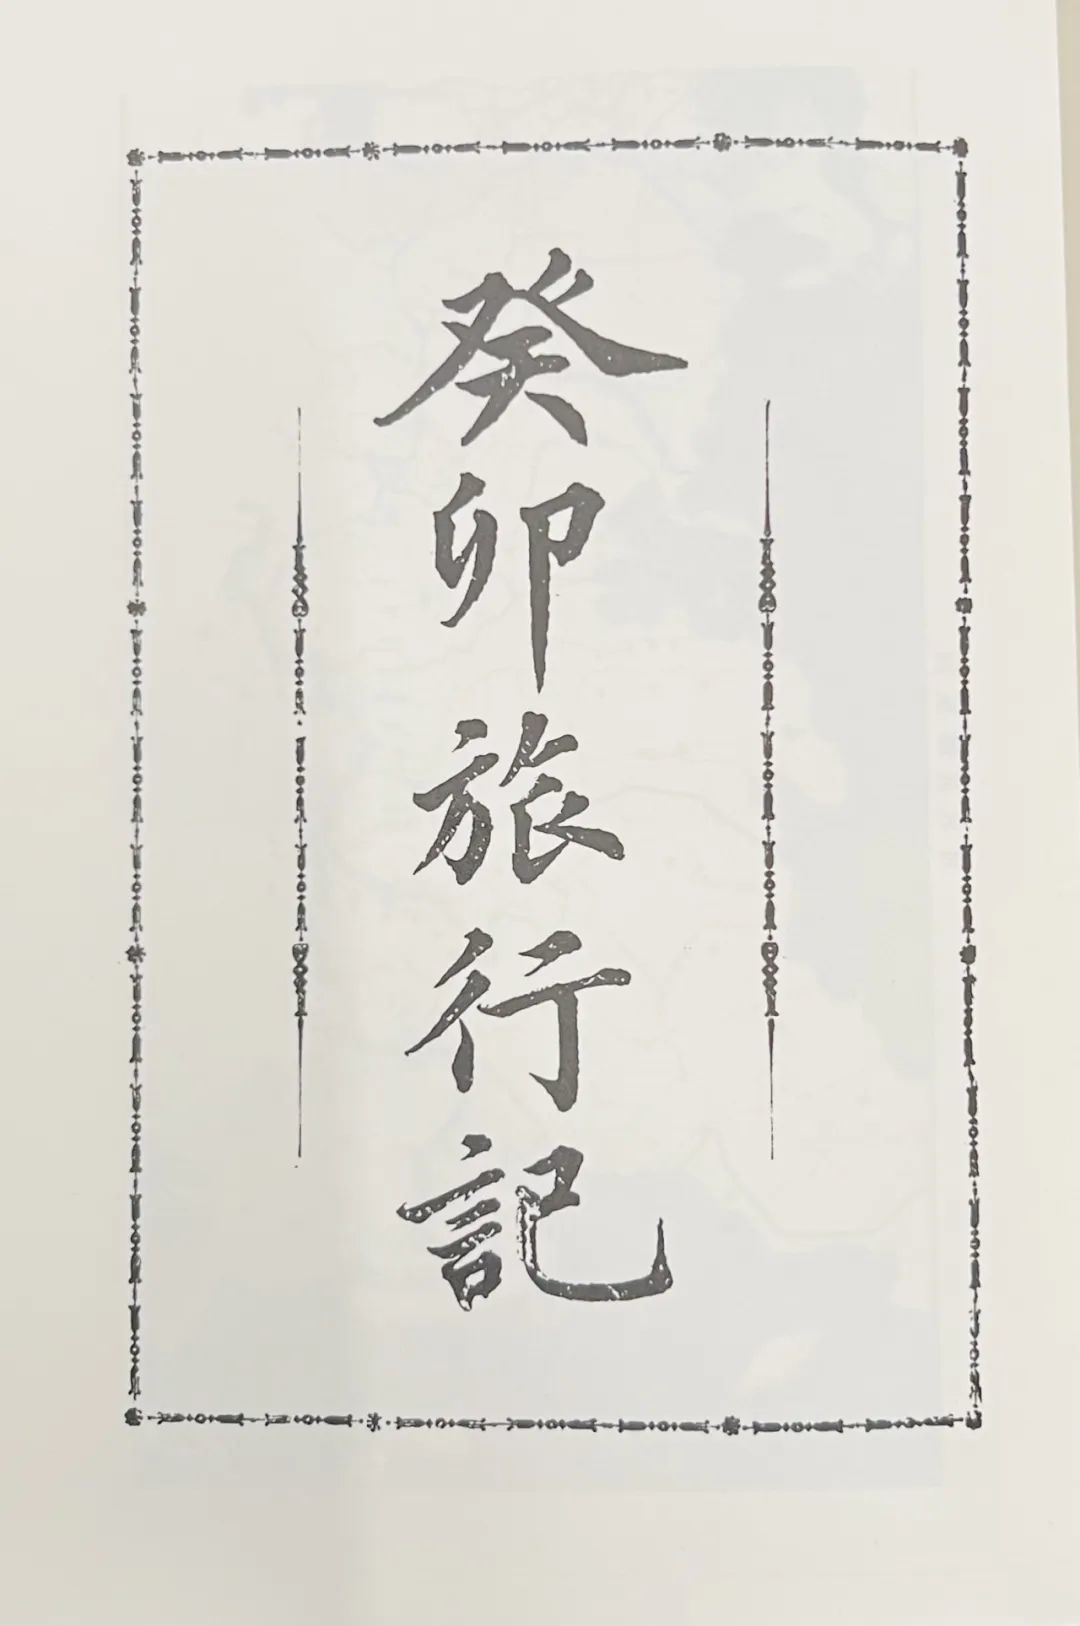 癸卯旅行記